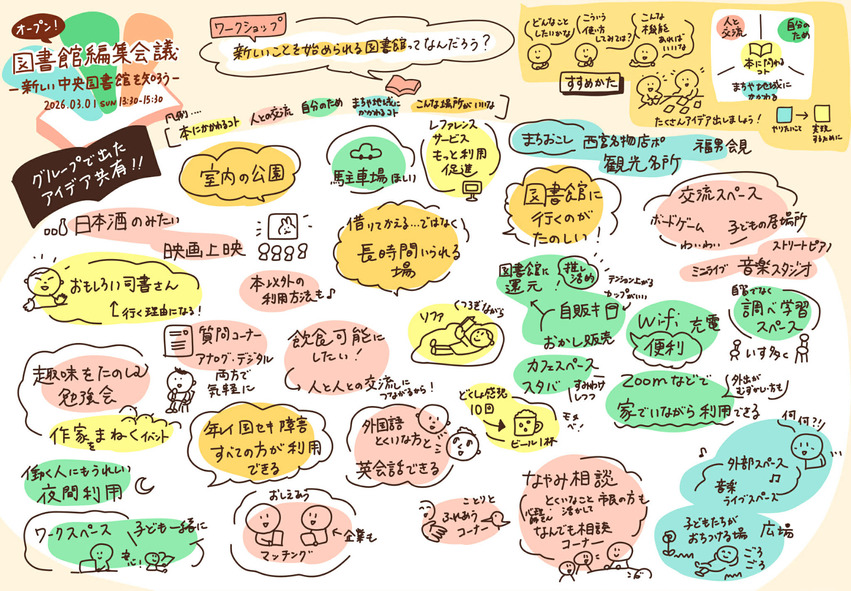 オープン!
図書館編集会議
-新しい中央図書館を知ろう-
2026.03.01 SUN 13:30-15:30
ワークショップ
新しいことを始められる図書館ってなんだろう?
どんなこと
したいかな?
こういう
使い方
してみては?
こんな
機能
あれば
いいな
人と
交流
自分の
ため
本に関わる
コト
まちや地域に
かかわる
すすめかた
たくさんアイデア出しましょう!
やりたいこと
→
実現
するために
凡例....
本にかかわるコト
人との交流
自分のため
まちや地域に
かかわるコト
こんな場所がいいな
グループで出た
アイデア共有!!
室内の公園
駐車場ほしい
レファレンス
サービス
もっと利用
促進
まちおこし
西宮名物店ポ
観光名所
福男会見
日本酒のみたい
映画上映
借りてかえる…ではなく
長時間いられる
場
図書館に
行くのが
たのしい!
交流スペース
ボードゲーム
子どもの居場所
わいわい
ストリートピアノ
ミニライブ
音楽スタジオ
おもしろい司書さん
↑行く理由になる!
本以外の
利用方法も♪
図書館に
還元!
推し
活的
テンション上がる
カップがいい
自販キ
おかし販売
ソファ
くつろぎながら
Wifi 充電
便利
自習でなく
調べ学習
スペース
いす多く
質問コーナー
アナログ・デジタル
両方で
気軽に
飲食可能に
したい!
→人と人との交流に
つながるから!
カフェスペース
スタバ
すみわけ
しつつ
趣味をたのしむ
勉強会
作家をまねくイベント
年イ国セキ障害
すべての方が利用
できる
外国語
とくいな方と
英会話できる
どくしょ感想
10回
ビール1杯
Zoomなどで
家でいながら利用できる
外出が
むずかしい方も
何何?!
働く人にもうれしい
夜間利用
ワークスペース
子ども一緒に
おしえあう
マッチング
←企業も
ことりと
ふれあう
コーナー
なやみ相談
とくいなこと
活かして
市民の方も
なんでも相談
コーナー
外部スペース
音楽
ライブスペース
子どもたちが
おちつける場
広場
ごろ
ごろ